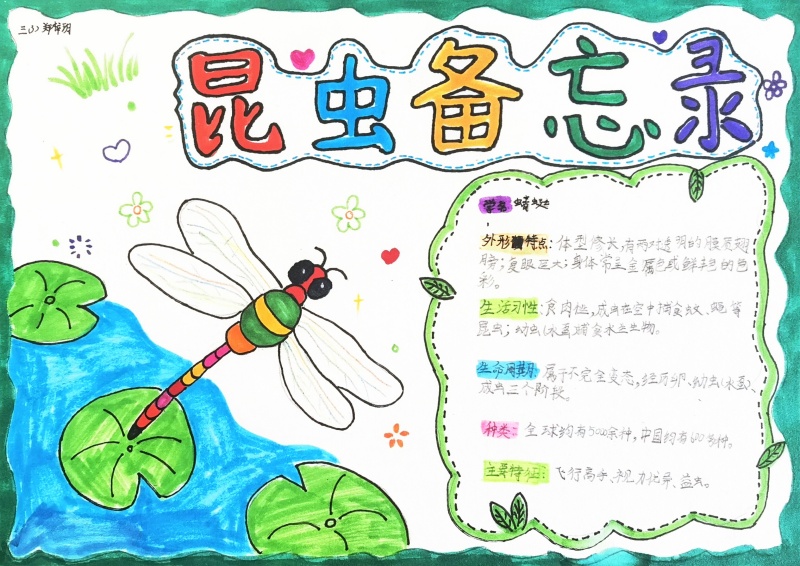 三(1) 郑梓玥
昆虫备忘录
学名 蜻蜓
外形特点:体型修长,有两对透明的膜质翅
膀;复眼巨大;身体常呈金属色或鲜艳的色
彩。
生活习性:食肉性,成虫在空中捕食蚊、蝇等
昆虫;幼虫(水虿)捕食水生生物。
生命周期:属于不完全变态,经历卵、幼虫(水虿)、
成虫三个阶段。
种类:全球约有5000余种,中国约有
主要特征:飞行高手、视力优异、益虫。